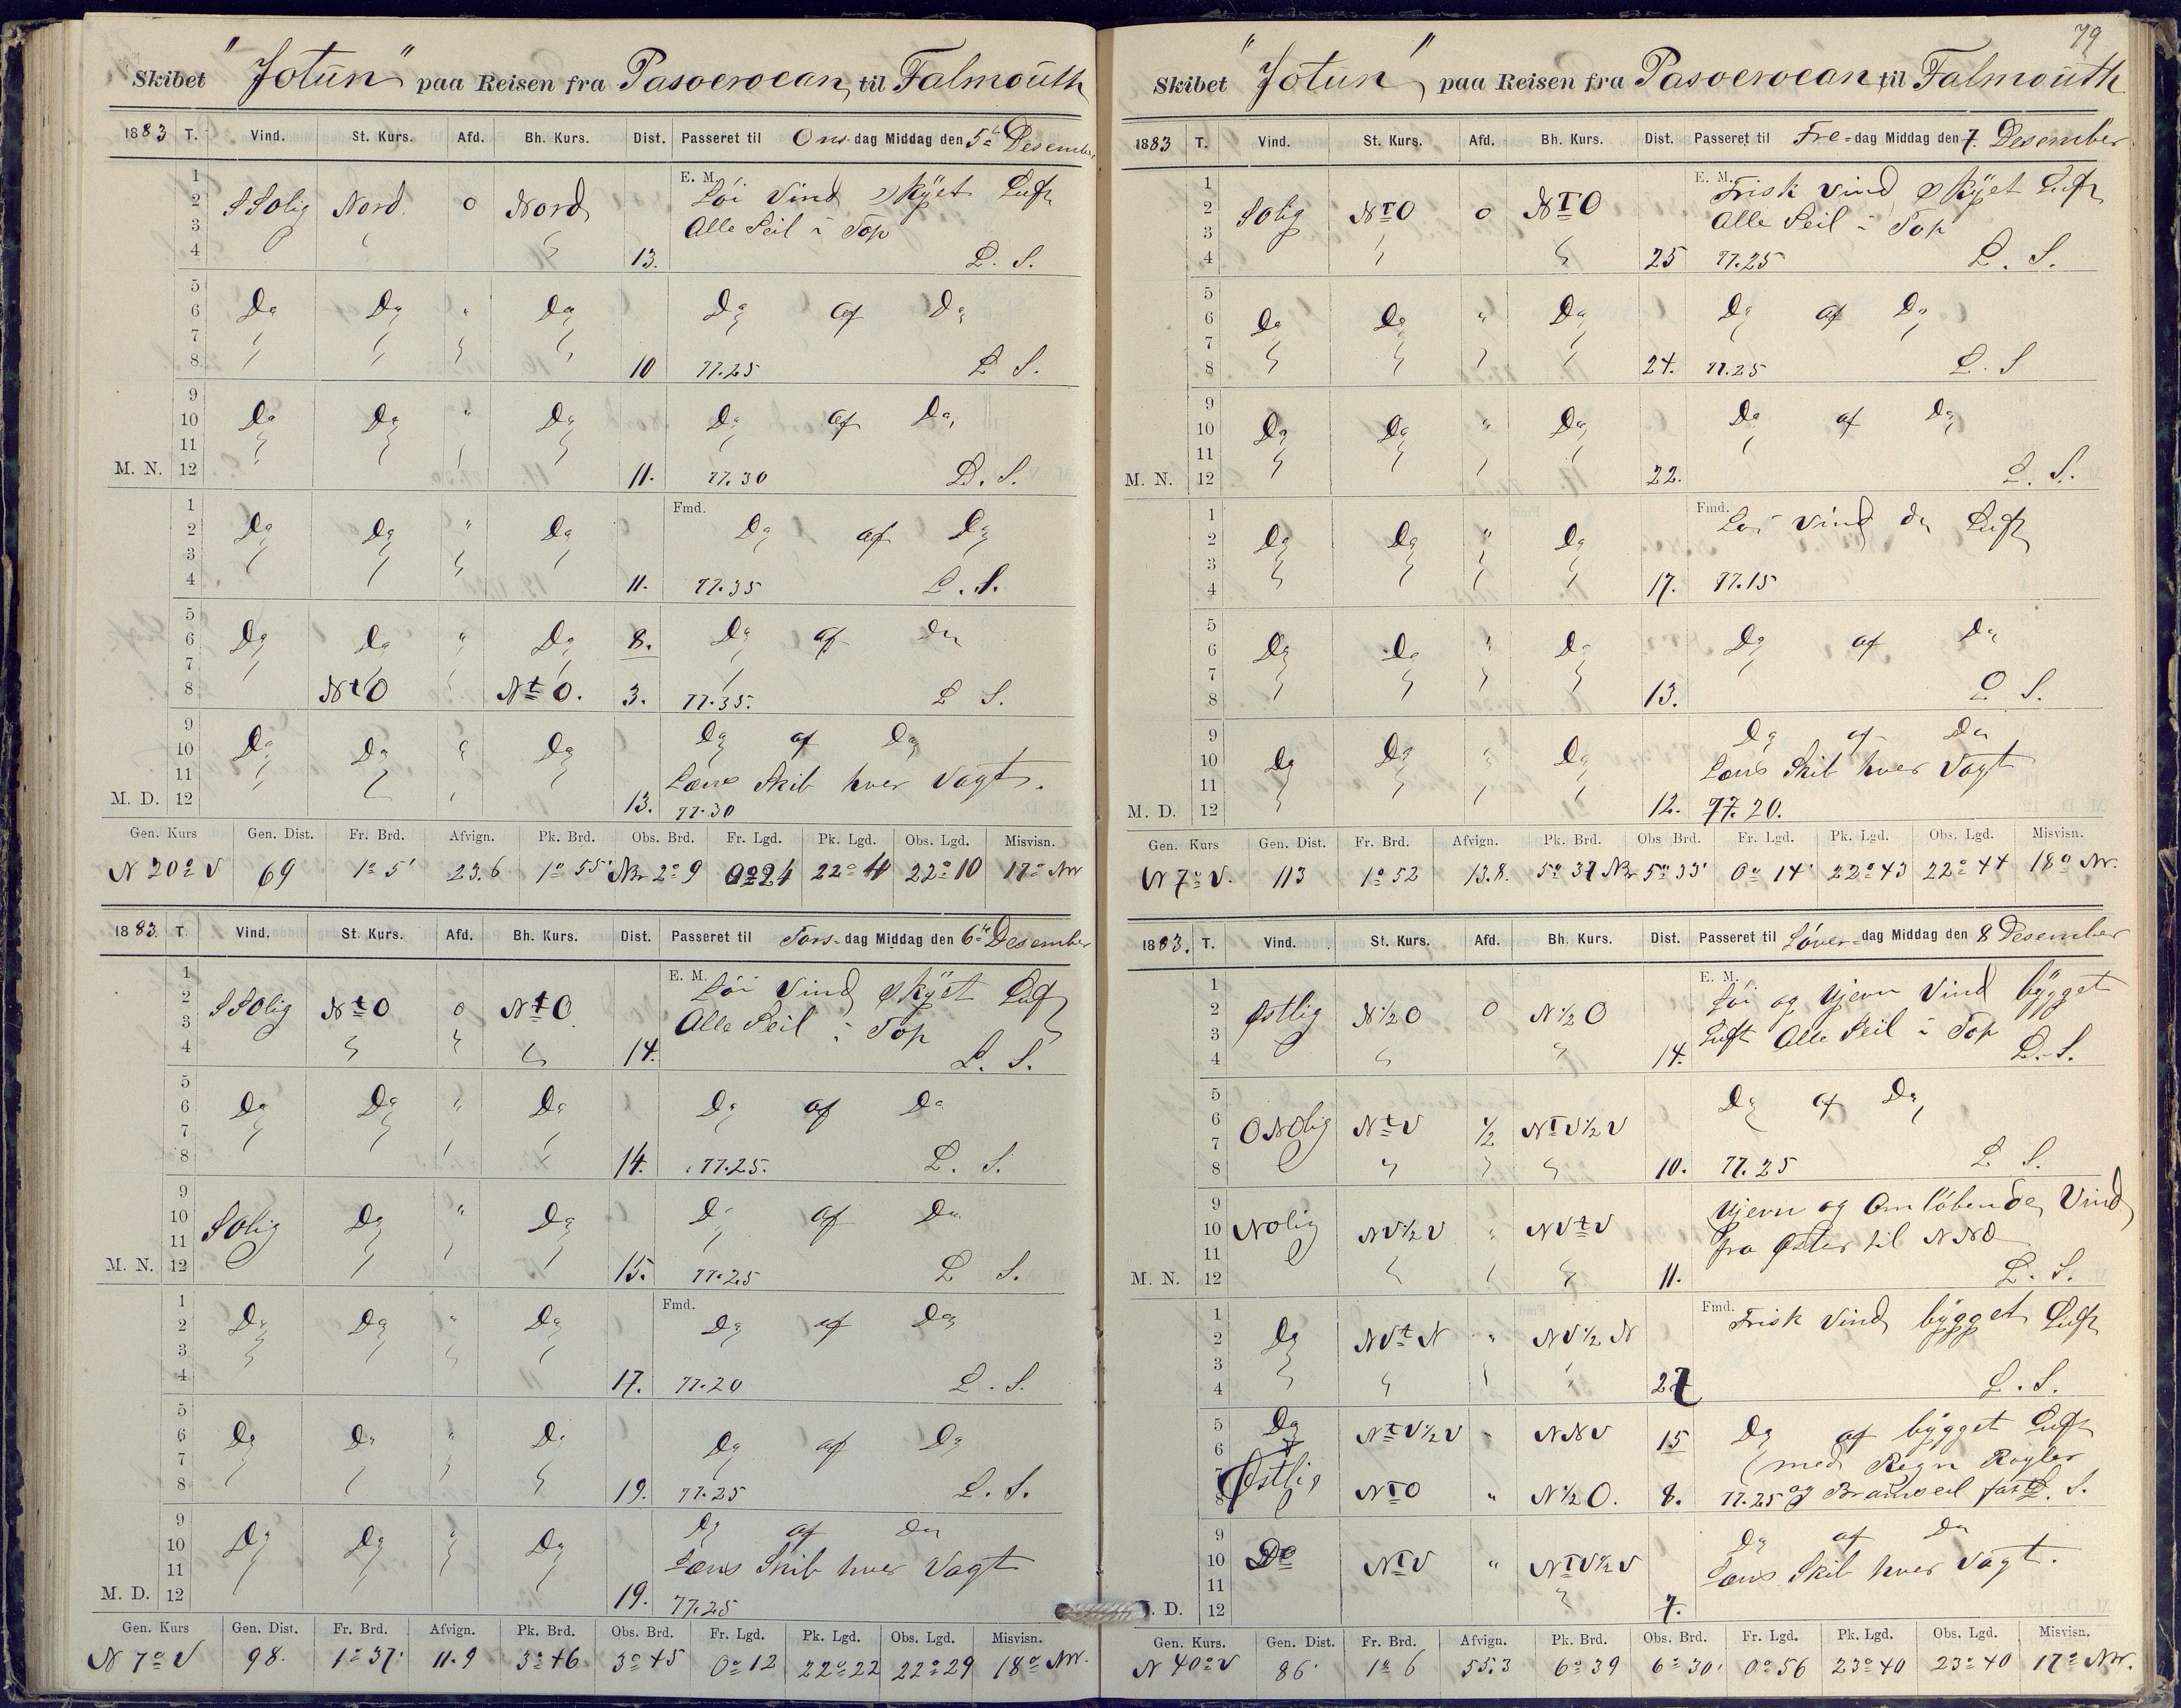 Skibet "Jotun" paa Reisen fra Pasoeroean, til Falmouth
1883 T. Vind. St. Kurs. Afd. Bh. Kurs. Dist. Passeret til Onsdag Middag den 5te Desember
1 E. M. Löi Vind, skÿet Luft
2 SSolig Nord. 0 Nord
3 Alle Seil i Top
4 13. L. S.
5
6 Do Do " Do Do af Do
7
8 10 77.25 L S.
9
10 Do Do " Do Do af Do
11
M. N. 12 11. 77.30 L. S.
1 Fmd.
2 Do Do " Do Do af Do
3
4 11. 77.35 L. S.
5
6 Do Do " Do 8. Do af Do
7
8 NtO NtO. 3. 77.35. L S.
9
10 Do Do " Do Do af Do
11 Læns Skib hver Vagt.
M. D. 12 13. 77.30
Gen. Kurs Gen. Dist. Fr. Brd. Afvign. Pk. Brd. Obs. Brd. Fr. Lgd. Pk. Lgd. Obs. Lgd. Misvisn.
N 20° V 69 1° 5' 23.6 1° 55' Nr 2° 9 0° 24 22° 4 22° 10 17° NV
1883. T. Vind. St. Kurs. Afd. Bh. Kurs. Dist. Passeret til Tors-dag Middag den 6te Desember
1 E. M. Löi Vind, skÿet Luft
2 SSolig NtO 0 NtO
3 Alle Seil i Top
4 14. L. S.
5
6 Do Do " Do Do af Do
7
8 14. 77.25. L. S.
9
10 Solig Do " Do Do af Do
11
M. N. 12 15. 77.25 L S.
1 Fmd.
2 Do Do " Do Do af Do
3
4 17. 77.20 L. S.
5
6 Do Do " Do Do af Do
7
8 19. 77.25 L. S.
9
10 Do Do " Do Do af Do
11 Læns Skib hver Vagt
M. D. 12 19. 77.25
Gen. Kurs Gen. Dist. Fr. Brd. Afvign. Pk. Brd. Obs. Brd. Fr. Lgd. Pk. Lgd. Obs. Lgd. Misvisn.
N 7° V 98. 1° 37' 11.9 3° 46 3° 45 0° 12 22° 22 22° 29 18° NV.
79
Skibet "Jotun", paa Reisen fra Pasoeroean, til Falmouth
1883 T. Vind. St. Kurs. Afd. Bh. Kurs. Dist. Passeret til Fre-dag Middag den 7. Desember
1 E. M. Frisk Vind, skÿet Luft
2 Solig NTO 0 NTO
3 Alle Seil i Top
4 25 77.25 L. S.
5
6 Do Do " Do Do af Do
7
8 24. 77.25 L. S
9
10 Do Do " Do Do af Do
11
M. N. 12 22. L. S.
1 Fmd. Löi Vind do Luft
2 Do Do " Do
3
4 17. 77.15
5
6 Do Do " Do Do af Do
7
8 13. L S.
9
10 Do Do " Do Do af Do
11 Læns Skib hver Vagt
M. D. 12 12. 77.20.
Gen. Kurs Gen. Dist. Fr. Brd. Afvign. Pk. Brd. Obs Brd. Fr. Lgd. Pk. Lgd. Obs. Lgd. Misvisn.
N 7° V. 113 1° 52 13.8. 5° 37 Nr 5° 33' 0° 14' 22° 43 22° 44 18° NV.
1883. T. Vind. St. Kurs. Afd. Bh. Kurs. Dist. Passeret til Löver-dag Middag den 8 Desember
1 E. M. Löi og Ujevn Vind bÿgget
2 Østlig N½O 0 N½O
3 Luft Alle Seil i Top
4 14. L. S.
5
6 ONOlig NtV ½ NTV½V Do af Do
7
8 10. 77.25 L S.
9 Ujevn og Omlöbende, Vind
10 NOlig NV½V " NVtV
11 fra Øster til NNO
M. N. 12 11. L. S.
1 Fmd. Frisk Vind, bÿgget Luft
2 Do NVtN " NV½N
3
4 27 L. S.
5 Do NtV½V " NNV 15 Do af bÿgget Luft
6
7 Østlig med Regn Kagler
8 NTO " N½O. 8. 77.25 og Bramseil fast L. S.
9 Do af Do
10 Do NTV " NTV½V
11 Læns Skib hver Vagt.
. D. 12 7.
Gen. Kurs. Gen. Dist. Fr. Brd. Afvign. Pk. Brd. Obs. Brd. Fr. Lgd. Pk. Lgd. Obs. Lgd. Misvisn.
N 40° V 86' 1° 6 55.3 6° 39 6° 30' 0° 56 23° 40 23° 40 17° NV.